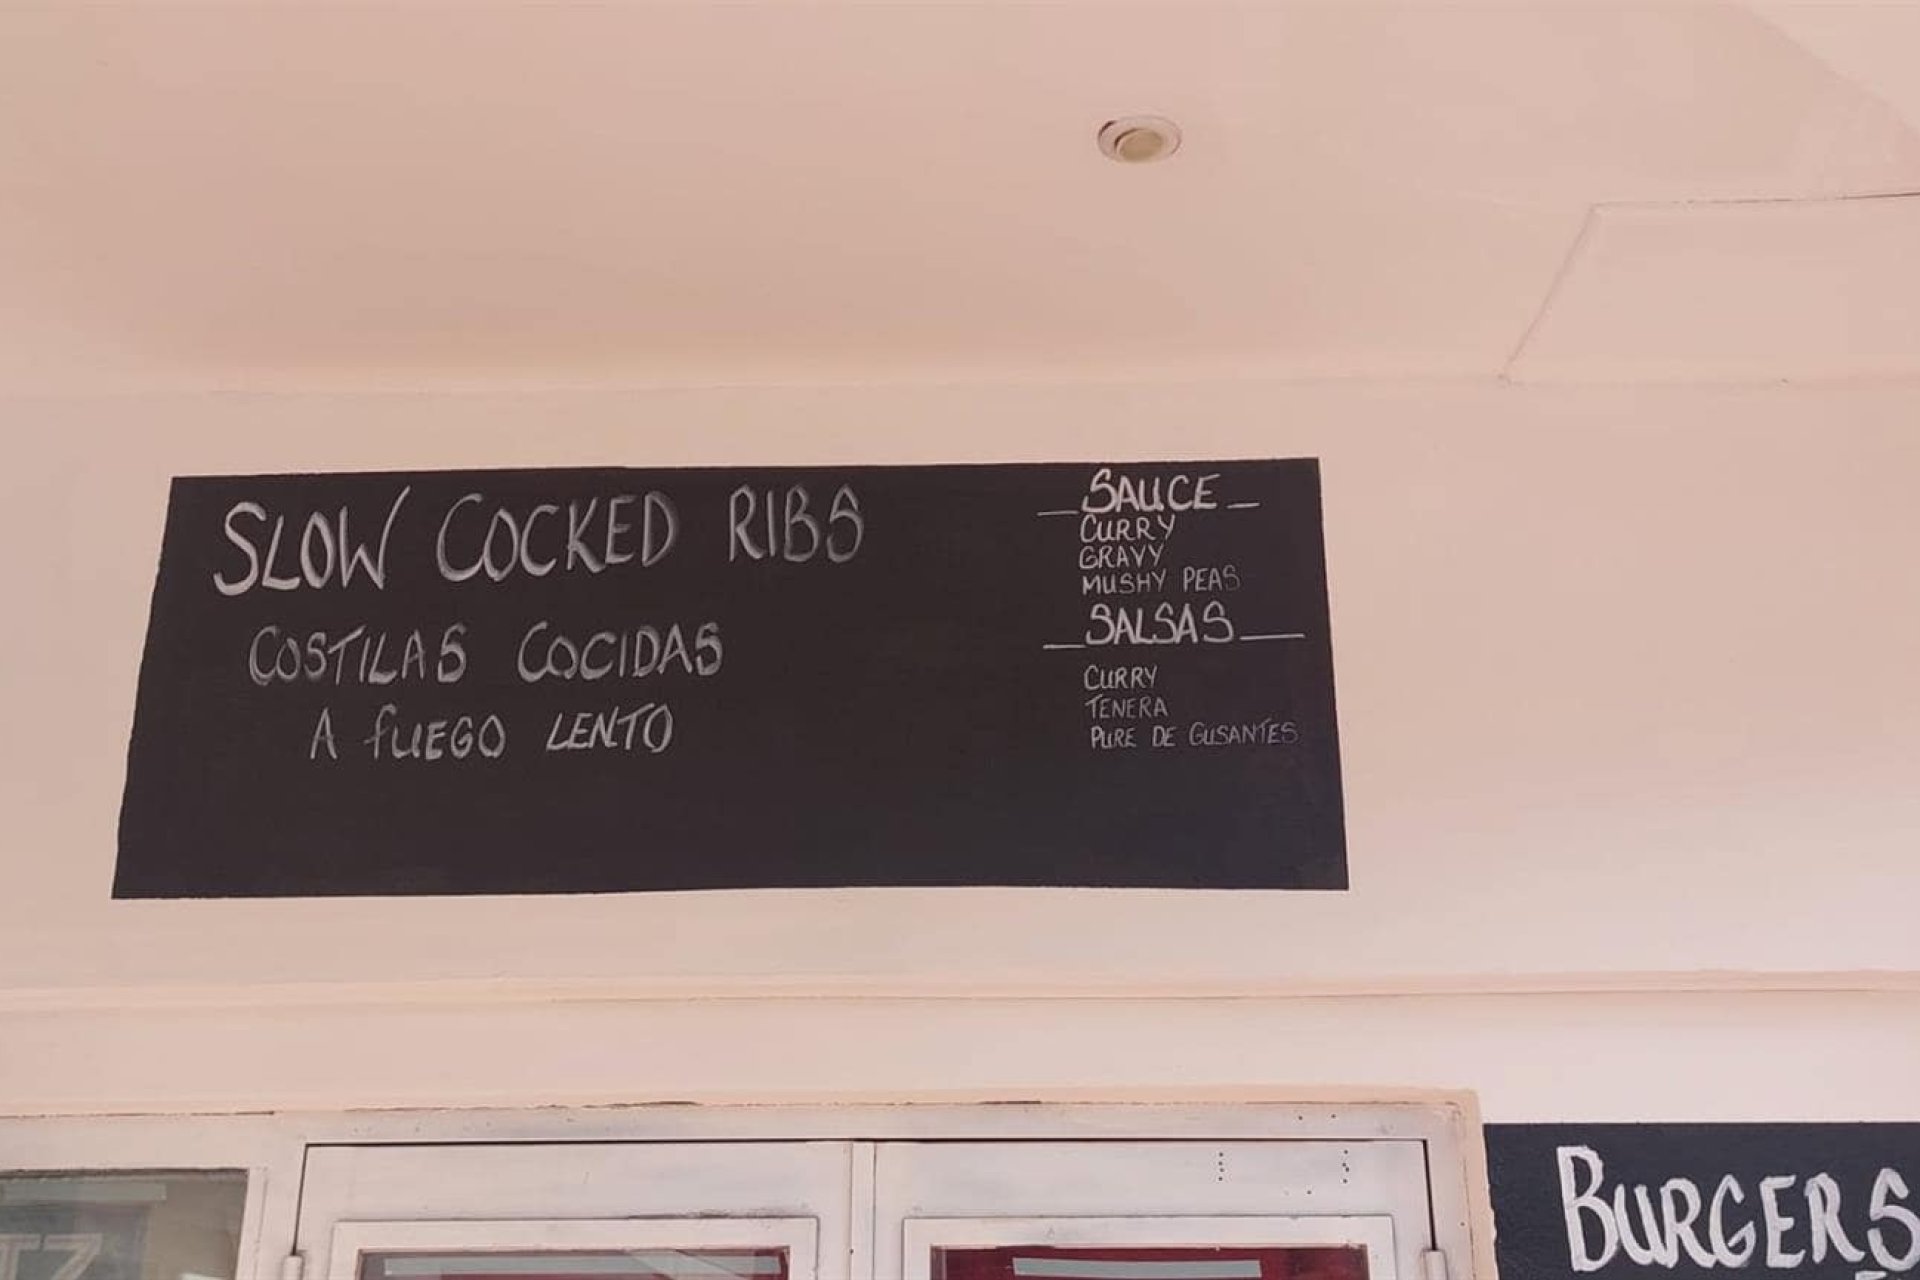 SLOW COCKED RIBS
COSTILAS COCIDAS
A FUEGO LENTO
SAUCE
CURRY
GRAVY
MUSHY PEAS
SALSAS
CURRY
TENERA
PURE DE GUSANTES
BURGERS